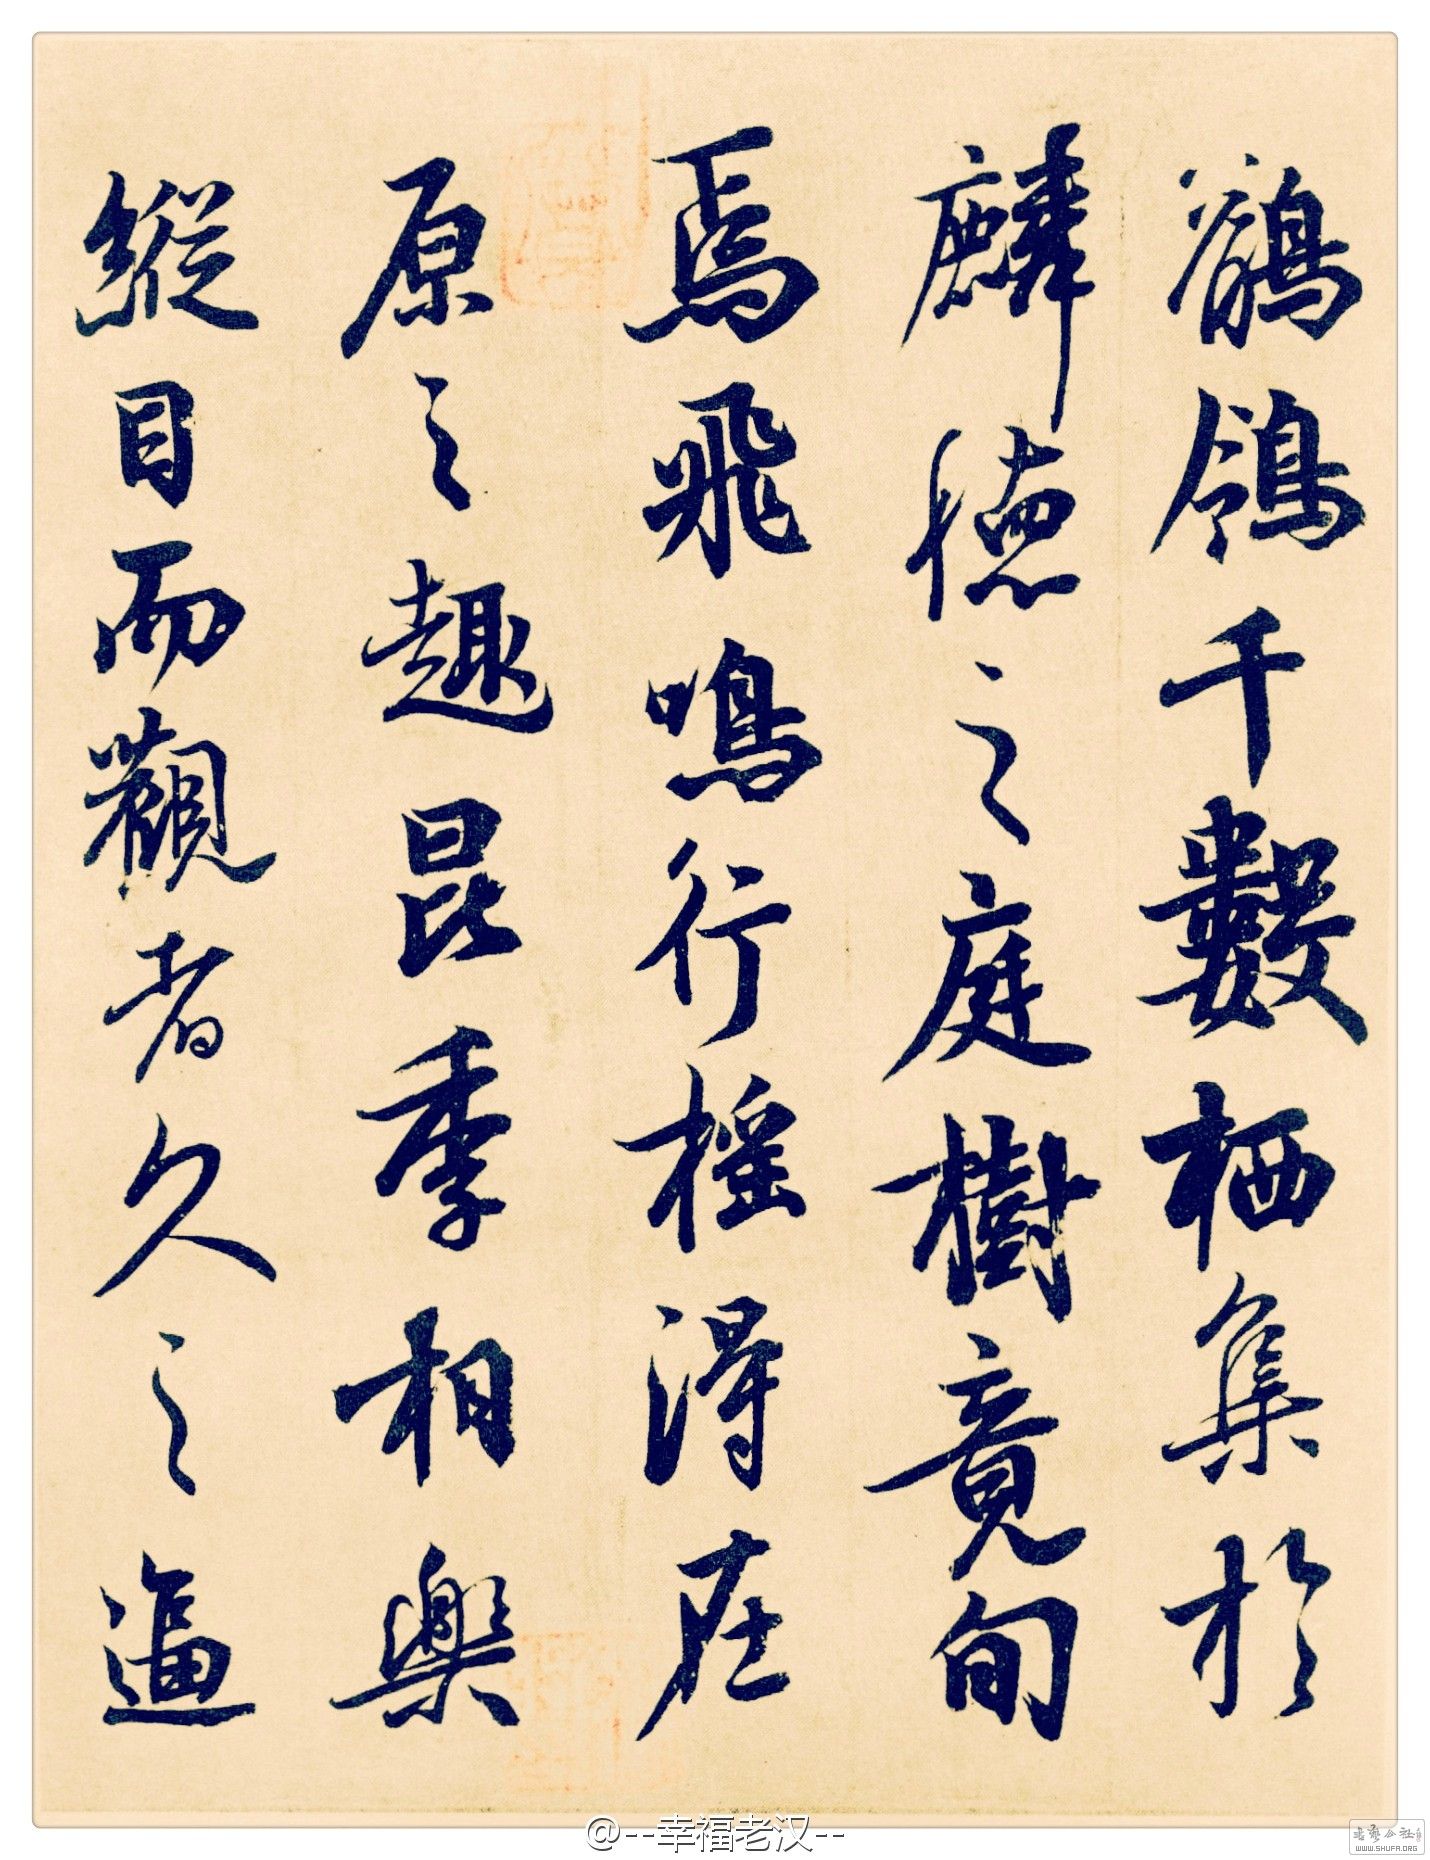 鶺鴒千數栖集於
麟德之庭樹竟旬
焉飛鳴行摇得在
原之趣昆季相樂
縱目而觀者久之逼
@--幸福老汉--
书艺公社
WWW.SHUFA.ORG